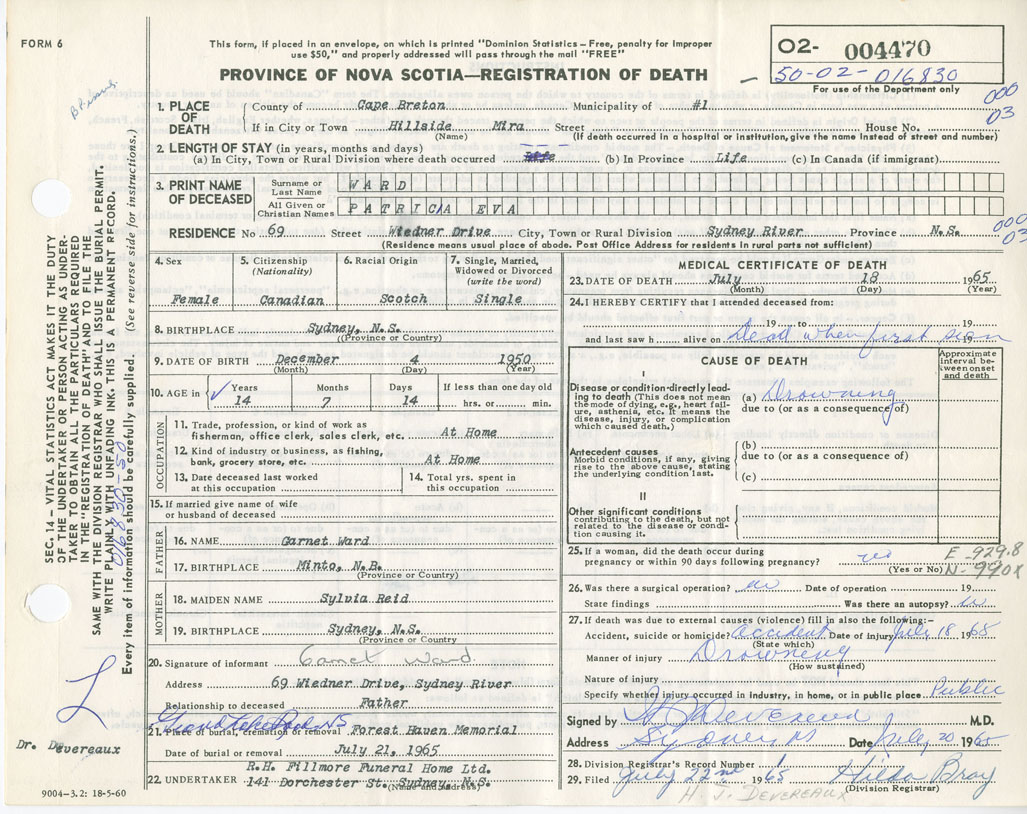 FORM 6
This form, if placed in an envelope, on which is printed "Dominion Statistics – Free, penalty for improper
use $50," and properly addressed will pass through the mail "FREE"
PROVINCE OF NOVA SCOTIA—REGISTRATION OF DEATH
O2- 004470
50-02-016830
For use of the Department only
000
03
1. PLACE OF DEATH
County of Cape Breton Municipality of #1
If in City or Town Hillside Mira Street House No.
(Name) (If death occurred in a hospital or institution, give the name instead of street and number)
2. LENGTH OF STAY (in years, months and days)
(a) In City, Town or Rural Division where death occurred (b) In Province Life (c) In Canada (if immigrant)
3. PRINT NAME OF DECEASED
Surname or Last Name WARD
All Given or Christian Names PATRICIA EVA
RESIDENCE No 69 Street Wiedner Drive City, Town or Rural Division Sydney River Province N.S.
(Residence means usual place of abode. Post Office Address for residents in rural parts not sufficient)
000
03
4. Sex
Female
5. Citizenship
(Nationality)
Canadian
6. Racial Origin
Scotch
7. Single, Married,
Widowed or Divorced
(write the word)
Single
8. BIRTHPLACE Sydney, N.S.
(Province or Country)
9. DATE OF BIRTH December 4 1950
(Month) (Day) (Year)
10. AGE in
Years Months Days If less than one day old
14 7 14 hrs. or min.
OCCUPATION
11. Trade, profession, or kind of work as
fisherman, office clerk, sales clerk, etc. At Home
12. Kind of industry or business, as fishing,
bank, grocery store, etc. At Home
13. Date deceased last worked
at this occupation
14. Total yrs. spent in
this occupation
15. If married give name of wife
or husband of deceased
FATHER
16. NAME Garnet Ward
17. BIRTHPLACE Minto, N.B.
(Province or Country)
MOTHER
18. MAIDEN NAME Sylvia Reid
19. BIRTHPLACE Sydney, N.S.
(Province or Country
20. Signature of informant Garnet Ward.
Address 69 Wiedner Drive, Sydney River
Relationship to deceased Father
21. Place of burial, cremation or removal Forest Haven Memorial
Date of burial or removal July 21, 1965
22. UNDERTAKER R.H. Fillmore Funeral Home Ltd.
141 Dorchester St. Sydney, N.S.
(Name and Address)
MEDICAL CERTIFICATE OF DEATH
23. DATE OF DEATH July 18 1965
(Month) (Day) (Year)
24. I HEREBY CERTIFY that I attended deceased from:
19 to 19
and last saw h alive on Dead when first seen 19
CAUSE OF DEATH
Approximate
interval be-
tween onset
and death
I
Disease or condition directly lead-
ing to death (This does not mean
the mode of dying, e.g., heart fail-
ure, asthenia, etc. It means the
disease, injury, or complication
which caused death.)
(a) Drowning
due to (or as a consequence of)
Antecedent causes
Morbid conditions, if any, giving
rise to the above cause, stating
the underlying condition last.
(b)
due to (or as a consequence of)
(c)
II
Other significant conditions
contributing to the death, but not
related to the disease or condi-
tion causing it.
25. If a woman, did the death occur during
pregnancy or within 90 days following pregnancy? no
(Yes or No)
E-929.8
N-990X
26. Was there a surgical operation? no Date of operation 19
State findings Was there an autopsy? no
27. If death was due to external cause (violence) fill in also the following:–
Accident, suicide or homicide? Accident Date of injury July 18 1965
(State which)
Manner of injury Drowning
(How sustained)
Nature of injury
Specify whether injury occurred in industry, in home, or in public place Public
Signed by H J Devereux M.D.
Address Sydney NS Date July 20 1965
28. Division Registrar's Record Number
29. Filed July 22nd 1965 Hilda Bray
(Division Registrar)
H. J. DEVEREAUX
SEC. 14 – VITAL STATISTICS ACT MAKES IT THE DUTY
OF THE UNDERTAKER OR PERSON ACTING AS UNDER-
TAKER TO OBTAIN ALL THE PARTICULARS REQUIRED
IN THE "REGISTRATION OF DEATH" AND TO FILE THE
SAME WITH THE DIVISION REGISTRAR WHO SHALL ISSUE THE BURIAL PERMIT.
WRITE PLAINLY WITH UNFADING INK. THIS IS A PERMANENT RECORD.
Every item of information should be carefully supplied. (See reverse side for instructions.)
016830-50
Dr. Devereaux
9004–3.2: 18-5-60